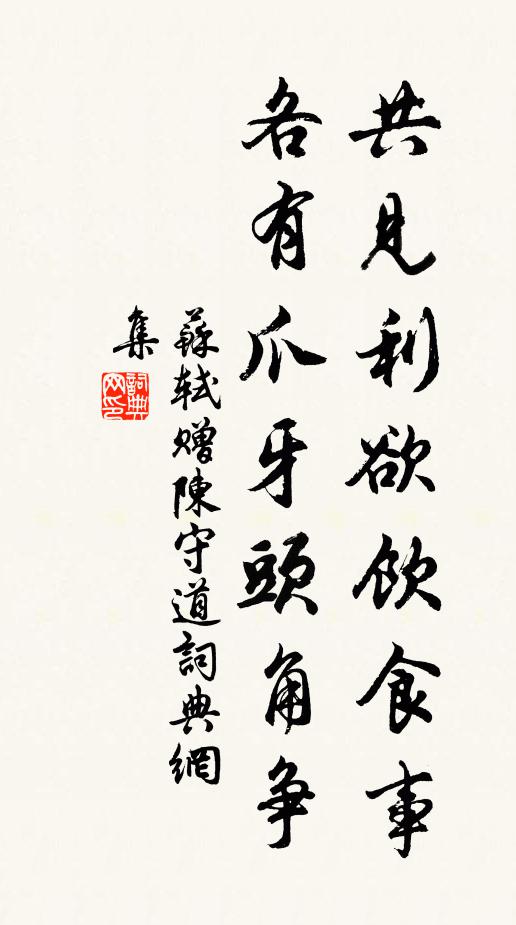 共見利欲飲食事
各有爪牙頭角爭
蘇軾贈陳守道詞典網
集
詞典
网印